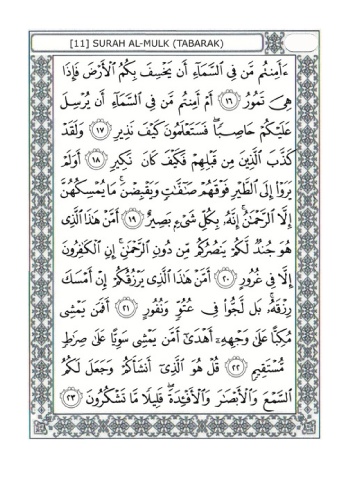 [11] SURAH AL-MULK (TABARAK)
ءَأَمِنتُم مَّن فِى ٱلسَّمَآءِ أَن يَخْسِفَ بِكُمُ ٱلْأَرْضَ فَإِذَا
هِىَ تَمُورُ ١٦ أَمْ أَمِنتُم مَّن فِى ٱلسَّمَآءِ أَن يُرْسِلَ
عَلَيْكُمْ حَاصِبًا ۖ فَسَتَعْلَمُونَ كَيْفَ نَذِيرِ ١٧ وَلَقَدْ
كَذَّبَ ٱلَّذِينَ مِن قَبْلِهِمْ فَكَيْفَ كَانَ نَكِيرِ ١٨ أَوَلَمْ
يَرَوْا۟ إِلَى ٱلطَّيْرِ فَوْقَهُمْ صَٰٓفَّٰتٍ وَيَقْبِضْنَ ۚ مَا يُمْسِكُهُنَّ
إِلَّا ٱلرَّحْمَٰنُ ۚ إِنَّهُۥ بِكُلِّ شَىْءٍۭ بَصِيرٌ ١٩ أَمَّنْ هَٰذَا ٱلَّذِى
هُوَ جُندٌ لَّكُمْ يَنصُرُكُم مِّن دُونِ ٱلرَّحْمَٰنِ ۚ إِنِ ٱلْكَٰفِرُونَ
إِلَّا فِى غُرُورٍ ٢٠ أَمَّنْ هَٰذَا ٱلَّذِى يَرْزُقُكُمْ إِنْ أَمْسَكَ
رِزْقَهُۥ ۚ بَل لَّجُّوا۟ فِى عُتُوٍّ وَنُفُورٍ ٢١ أَفَمَن يَمْشِى
مُكِبًّا عَلَىٰ وَجْهِهِۦٓ أَهْدَىٰٓ أَمَّن يَمْشِى سَوِيًّا عَلَىٰ صِرَٰطٍ
مُّسْتَقِيمٍ ٢٢ قُلْ هُوَ ٱلَّذِىٓ أَنشَأَكُمْ وَجَعَلَ لَكُمُ
ٱلسَّمْعَ وَٱلْأَبْصَٰرَ وَٱلْأَفْـِٔدَةَ ۖ قَلِيلًا مَّا تَشْكُرُونَ ٢٣